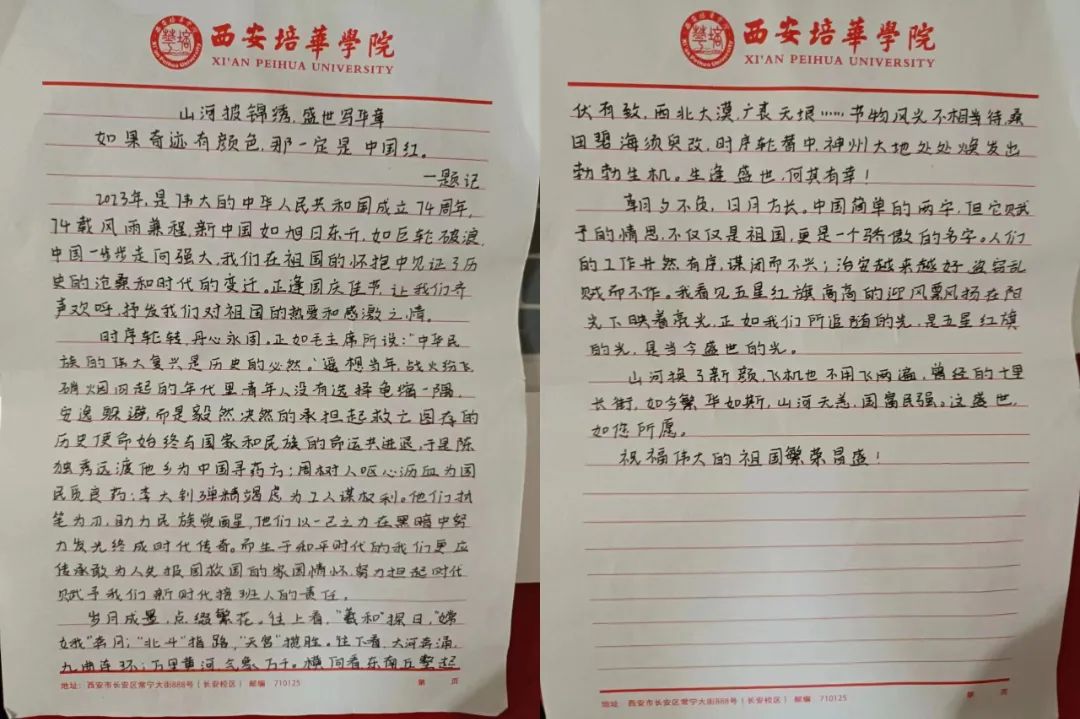 西安培華學院
XI'AN PEIHUA UNIVERSITY
山河披锦绣,盛世写华章
如果奇迹有颜色,那一定是中国红。
—题记
2023年,是伟大的中华人民共和国成立74周年,
74载风雨兼程,新中国如旭日东升,如巨轮破浪,
中国一步步走向强大,我们在祖国的怀抱中见证了历
史的沧桑和时代的变迁。正逢国庆佳节,让我们齐
声欢呼,抒发我们对祖国的热爱和感激之情。
时序轮转,丹心永固。正如毛主席所说:"中华民
族的伟大复兴是历史的必然。"遥想当年,战火纷飞,
硝烟四起的年代里青年人没有选择龟缩一隅,
安逸躲避,而是毅然决然的承担起救亡图存的
历史使命始终与国家和民族的命运共进退,于是陈
独秀远渡他乡为中国寻药方;周树人呕心沥血为国
民觅良药;李大钊殚精竭虑为工人谋权利。他们执
笔为刃,助力民族觉醒,他们以一己之力在黑暗中努
力发光终成时代传奇。而生于和平时代的我们更应
传承敢为人先报国救国的家国情怀,努力担起时代
赋予我们新时代接班人的责任。
岁月成叠,点缀繁花。往上看,"羲和"探日,"嫦
娥"奔月;"北斗"指路,"天宫"揽胜。往下看,大河奔涌,
九曲连环;万里黄河,气象万千。横向看东南丘壑起
地址:西安市长安区常宁大街888号(长安校区) 邮编 710125 第 页
西安培華學院
XI'AN PEIHUA UNIVERSITY
伏有致,西北大漠,广袤无垠……书物风光不相当待,桑
田碧海须臾改,时序轮替中,神州大地处处焕发出
勃勃生机。生逢盛世,何其有幸!
朝夕不负,日月方长。中国简单的两字,但它赋
予的情思,不仅仅是祖国,更是一个骄傲的名字。人们
的工作井然有序,谋闭而不兴;治安越来越好,盗窃乱
贼而不作。我看见五星红旗高高的迎风飘扬在阳
光下映着亮光,正如我们所追随的光,是五星红旗
的光,是当今盛世的光。
山河换了新颜,飞机也不用飞两遍,曾经的十里
长街,如今繁华如斯,山河无恙,国富民强。这盛世,
如您所愿。
祝福伟大的祖国繁荣昌盛!
地址 西安市长安区常宁大街888号(长安校区) 邮编 710125 第 页